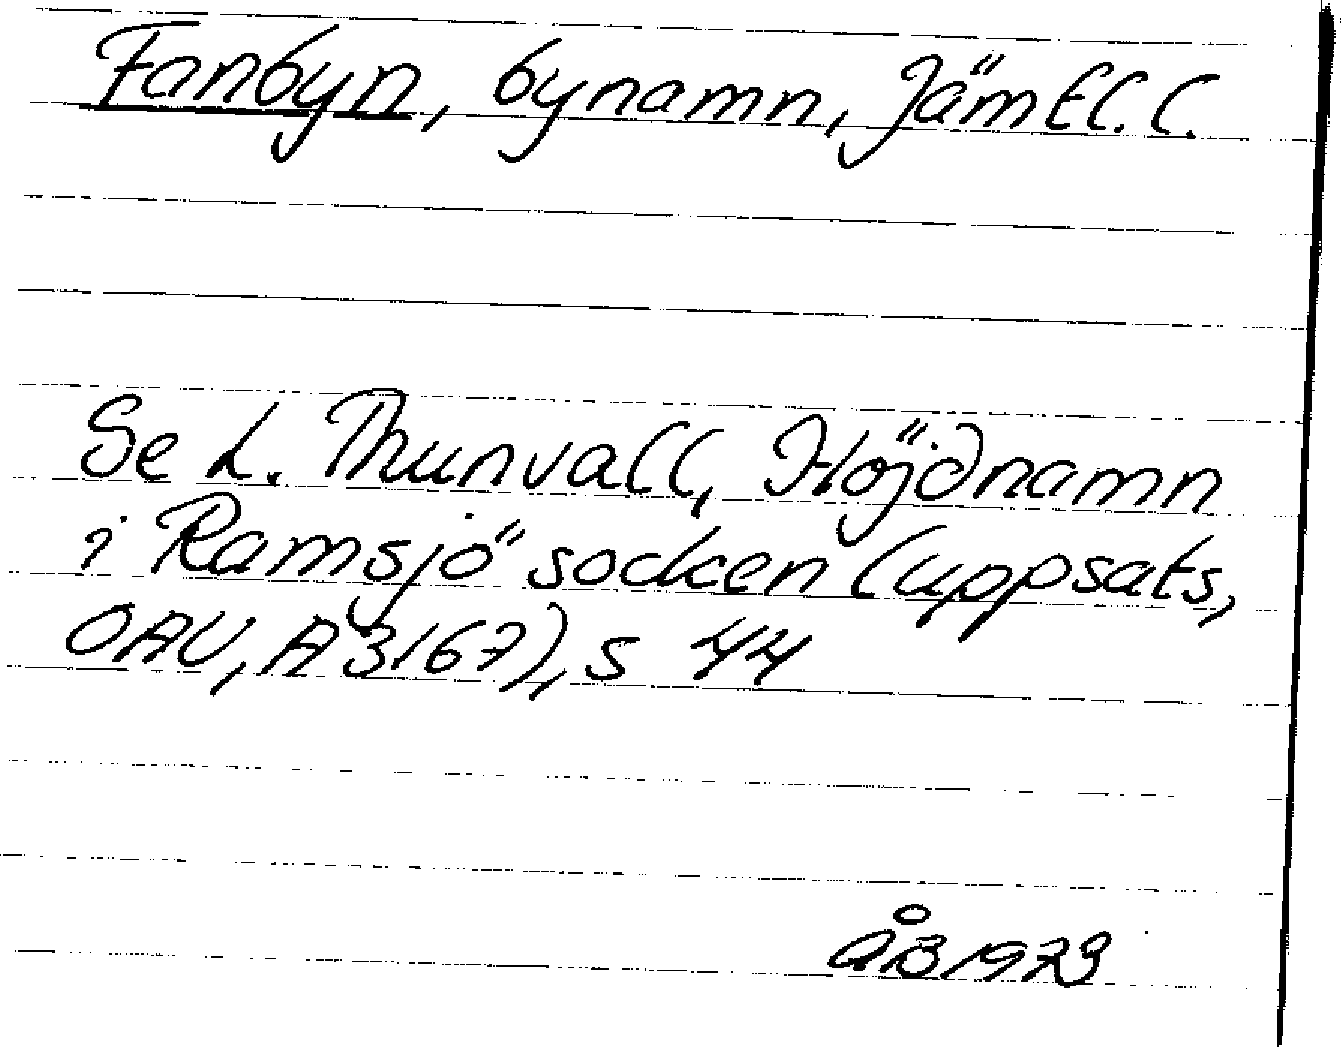 Fanbyn, bynamn, Jämtl. l.
Se L. Thunvall, Höjdnamn
i Ramsjö socken (uppsats,
OAU, A 3167), s 44
ÅB 1973